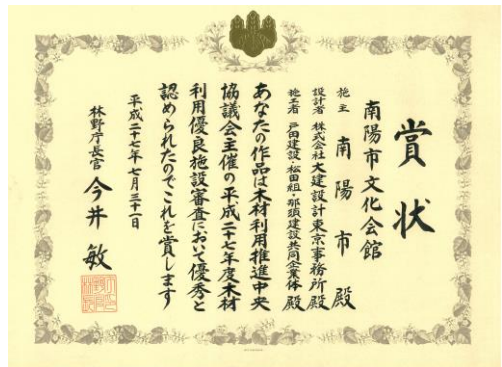 賞状
南陽市文化会館
施主 南陽市殿
設計者 株式会社大建設計東京事務所殿
施工者 戸田建設・松田組・那須建設共同企業体殿
あなたの作品は木材利用推進中央
協議会主催の平成二十七年度木材
利用優良施設審査において優秀と
認められたのでこれを賞します
平成二十七年七月三十一日
林野庁長官 今井敏